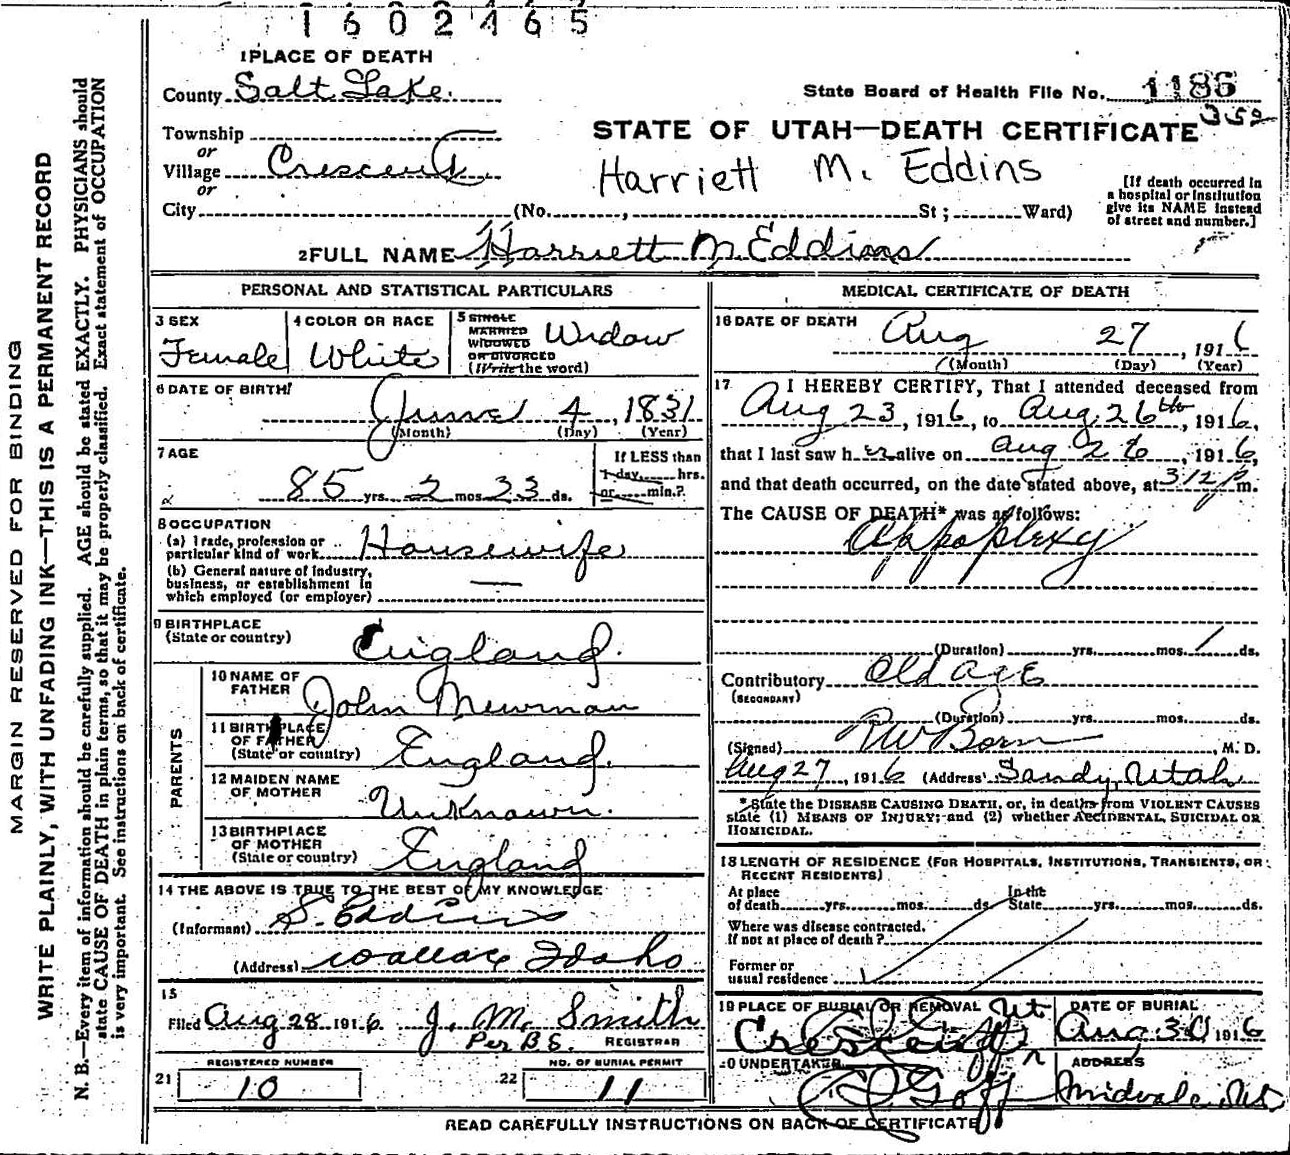 1602465
1 PLACE OF DEATH
County Salt Lake.
State Board of Health File No. 1186
352
Township
or
Village Crescent
or
City (No. , St ; Ward)
STATE OF UTAH—DEATH CERTIFICATE
Harriett M. Eddins
[If death occurred in
a hospital or institution
give its NAME instead
of street and number.]
2 FULL NAME Harriett M. Eddins
PERSONAL AND STATISTICAL PARTICULARS
3 SEX
Female
4 COLOR OR RACE
White
5 SINGLE
MARRIED
WIDOWED
OR DIVORCED
(Write the word)
Widow
6 DATE OF BIRTH
June 4, 1831
(Month) (Day) (Year)
7 AGE
85 yrs. 2 mos 23 ds.
If LESS than
1 day, hrs.
or min.?
8 OCCUPATION
(a) Trade, profession or
particular kind of work Housewife
(b) General nature of industry,
business, or establishment in
which employed (or employer)
9 BIRTHPLACE
(State or country) England.
PARENTS
10 NAME OF
FATHER John Newman
11 BIRTHPLACE
OF FATHER
(State or country) England.
12 MAIDEN NAME
OF MOTHER Unknown.
13 BIRTHPLACE
OF MOTHER
(State or country) England
14 THE ABOVE IS TRUE TO THE BEST OF MY KNOWLEDGE
(Informant) S. Eddins
(Address) Wallace Idaho
15
Filed Aug 28 1916 J. M. Smith
Per B.S. REGISTRAR
REGISTERED NUMBER
21 10
NO. OF BURIAL PERMIT
22 11
MEDICAL CERTIFICATE OF DEATH
16 DATE OF DEATH Aug 27, 1916
(Month) (Day) (Year)
17 I HEREBY CERTIFY, That I attended deceased from
Aug 23, 1916, to Aug. 26th, 1916,
that I last saw h er alive on Aug 26, 1916,
and that death occurred, on the date stated above, at 312 p m.
The CAUSE OF DEATH* was as follows:
Appoplexy
(Duration) yrs. mos. 1 ds.
Contributory Old age
(SECONDARY)
(Duration) yrs. mos. ds.
(Signed) RW Born, M. D.
Aug 27, 1916 (Address) Sandy, Utah
*State the DISEASE CAUSING DEATH, or, in deaths from VIOLENT CAUSES
state (1) MEANS OF INJURY; and (2) whether ACCIDENTAL, SUICIDAL OR
HOMICIDAL.
18 LENGTH OF RESIDENCE (FOR HOSPITALS, INSTITUTIONS, TRANSIENTS, OR
RECENT RESIDENTS)
At place
of death yrs. mos. ds.
In the
State yrs. mos. ds.
Where was disease contracted.
If not at place of death?
Former or
usual residence
19 PLACE OF BURIAL OR REMOVAL
Crescent Ut
DATE OF BURIAL
Aug 30 1916
20 UNDERTAKER
Goff
ADDRESS
Midvale, Ut.
READ CAREFULLY INSTRUCTIONS ON BACK OF CERTIFICATE
MARGIN RESERVED FOR BINDING
WRITE PLAINLY, WITH UNFADING INK—THIS IS A PERMANENT RECORD
N. B.—Every item of information should be carefully supplied. AGE should be stated EXACTLY. PHYSICIANS should
state CAUSE OF DEATH in plain terms, so that it may be properly classified. Exact statement of OCCUPATION
is very important. See instructions on back of certificate.